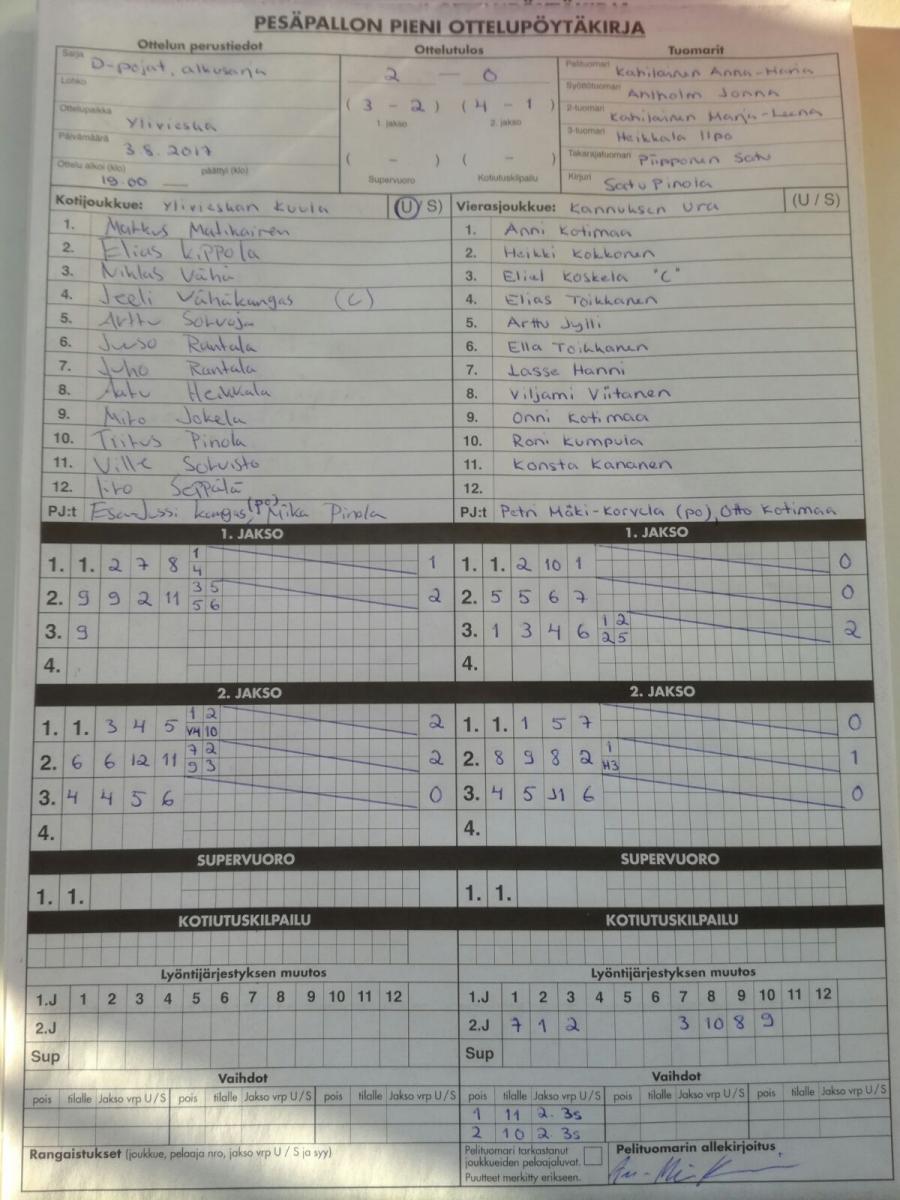 PESÄPALLON PIENI OTTELUPÖYTÄKIRJA
Ottelun perustiedot Ottelutulos Tuomarit
Sarja D-pojat, alkusarja
Lohko
Ottelupaikka Ylivieska
Päivämäärä 3.8.2017
Ottelu alkoi (klo) 19.00 päättyi (klo)
2 — 0
( 3 - 2 ) ( 4 - 1 )
1. jakso 2. jakso
( - ) ( - )
Supervuoro Kotiutuskilpailu
Pelituomari Kahilainen Anna-Maria
Syöttötuomari Antholm Jonna
2-tuomari Kahilainen Marja-Leena
3-tuomari Heikkala Ilpo
Takarajatuomari Piipponen Satu
Kirjuri Satu Pinola
Kotijoukkue: Ylivieskan Kuula (U / S)
1. Markus Matikainen
2. Elias Kippola
3. Niklas Vähä
4. Jeeli Vähäkangas (C)
5. Arttu Sorvoja
6. Juuso Rantala
7. Juho Rantala
8. Aatu Heikkala
9. Miro Jokela
10. Triitus Pinola
11. Ville Sorvisto
12. Iiro Seppälä
PJ:t Esa-Jussi Kangas (po), Mika Pinola
Vierasjoukkue: Kannuksen Ura (U / S)
1. Anni Kotimaa
2. Heikki Kokkonen
3. Eliel Koskela "C"
4. Elias Toikkanen
5. Arttu Jylli
6. Ella Toikkanen
7. Lasse Hanni
8. Viljami Viitanen
9. Onni Kotimaa
10. Roni Kumpula
11. Konsta Kananen
12.
PJ:t Petri Mäki-Korvela (po), Otto Kotimaa
1. JAKSO 1. JAKSO
1. 1. 2 7 8 1 4 1
2. 9 9 2 11 3 5 5 6 2
3. 9
4.
1. 1. 2 10 1 0
2. 5 5 6 7 0
3. 1 3 4 6 1 2 2 5 2
4.
2. JAKSO 2. JAKSO
1. 1. 3 4 5 1 2 V4 10 2
2. 6 6 12 11 7 2 9 3 2
3. 4 4 5 6 0
4.
1. 1. 1 5 7 0
2. 8 9 8 2 1 H3 1
3. 4 5 J1 6 0
4.
SUPERVUORO SUPERVUORO
1. 1. 1. 1.
KOTIUTUSKILPAILU KOTIUTUSKILPAILU
Lyöntijärjestyksen muutos Lyöntijärjestyksen muutos
1.J 1 2 3 4 5 6 7 8 9 10 11 12
2.J
Sup
1.J 1 2 3 4 5 6 7 8 9 10 11 12
2.J 7 1 2 3 10 8 9
Sup
Vaihdot Vaihdot
pois tilalle Jakso vrp U / S pois tilalle Jakso vrp U / S pois tilalle Jakso vrp U / S
pois tilalle Jakso vrp U / S pois tilalle Jakso vrp U / S pois tilalle Jakso vrp U / S
1 11 2. 3s
2 10 2. 3s
Rangaistukset (joukkue, pelaaja nro, jakso vrp U / S ja syy)
Pelituomari tarkastanut
joukkueiden pelaajaluvat.
Puutteet merkitty erikseen.
Pelituomarin allekirjoitus